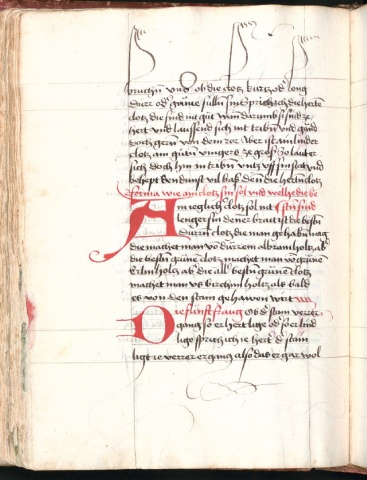 bruchen vnd ob die clotz kurtz od' long
dürr od' grüne süllen sind sprich ich die herten
clotz die sind nit gut wan darumb si sind ze
hert vnd laussend sich nit triben vnd gand
doch gern von dem ror Aber ist ain linder
clotz am
behept den dunst vil baß denn die herten clotz
forma wie ain clotz sin sol vnd welhe die be
Ain ieglich clotz sol nit sten sind
lenger sin denn er brait ist die besten
dürren clotz die man gehaben mag
die machet man vō dürrem albrom holtz ab'
die besten grüne clotz machet man vō grüne
Erlin holtz ab' die all' besten grünen clotz
machet man vs birchim holtz als bald
es von dem stam gehowen wirt
Die fünft fraug Ob d' stain verrer
gang so er hert lige od' so er lind
lige sprich ich ie hert' d' stain
ligt ie verrer er gang also das er gar wol